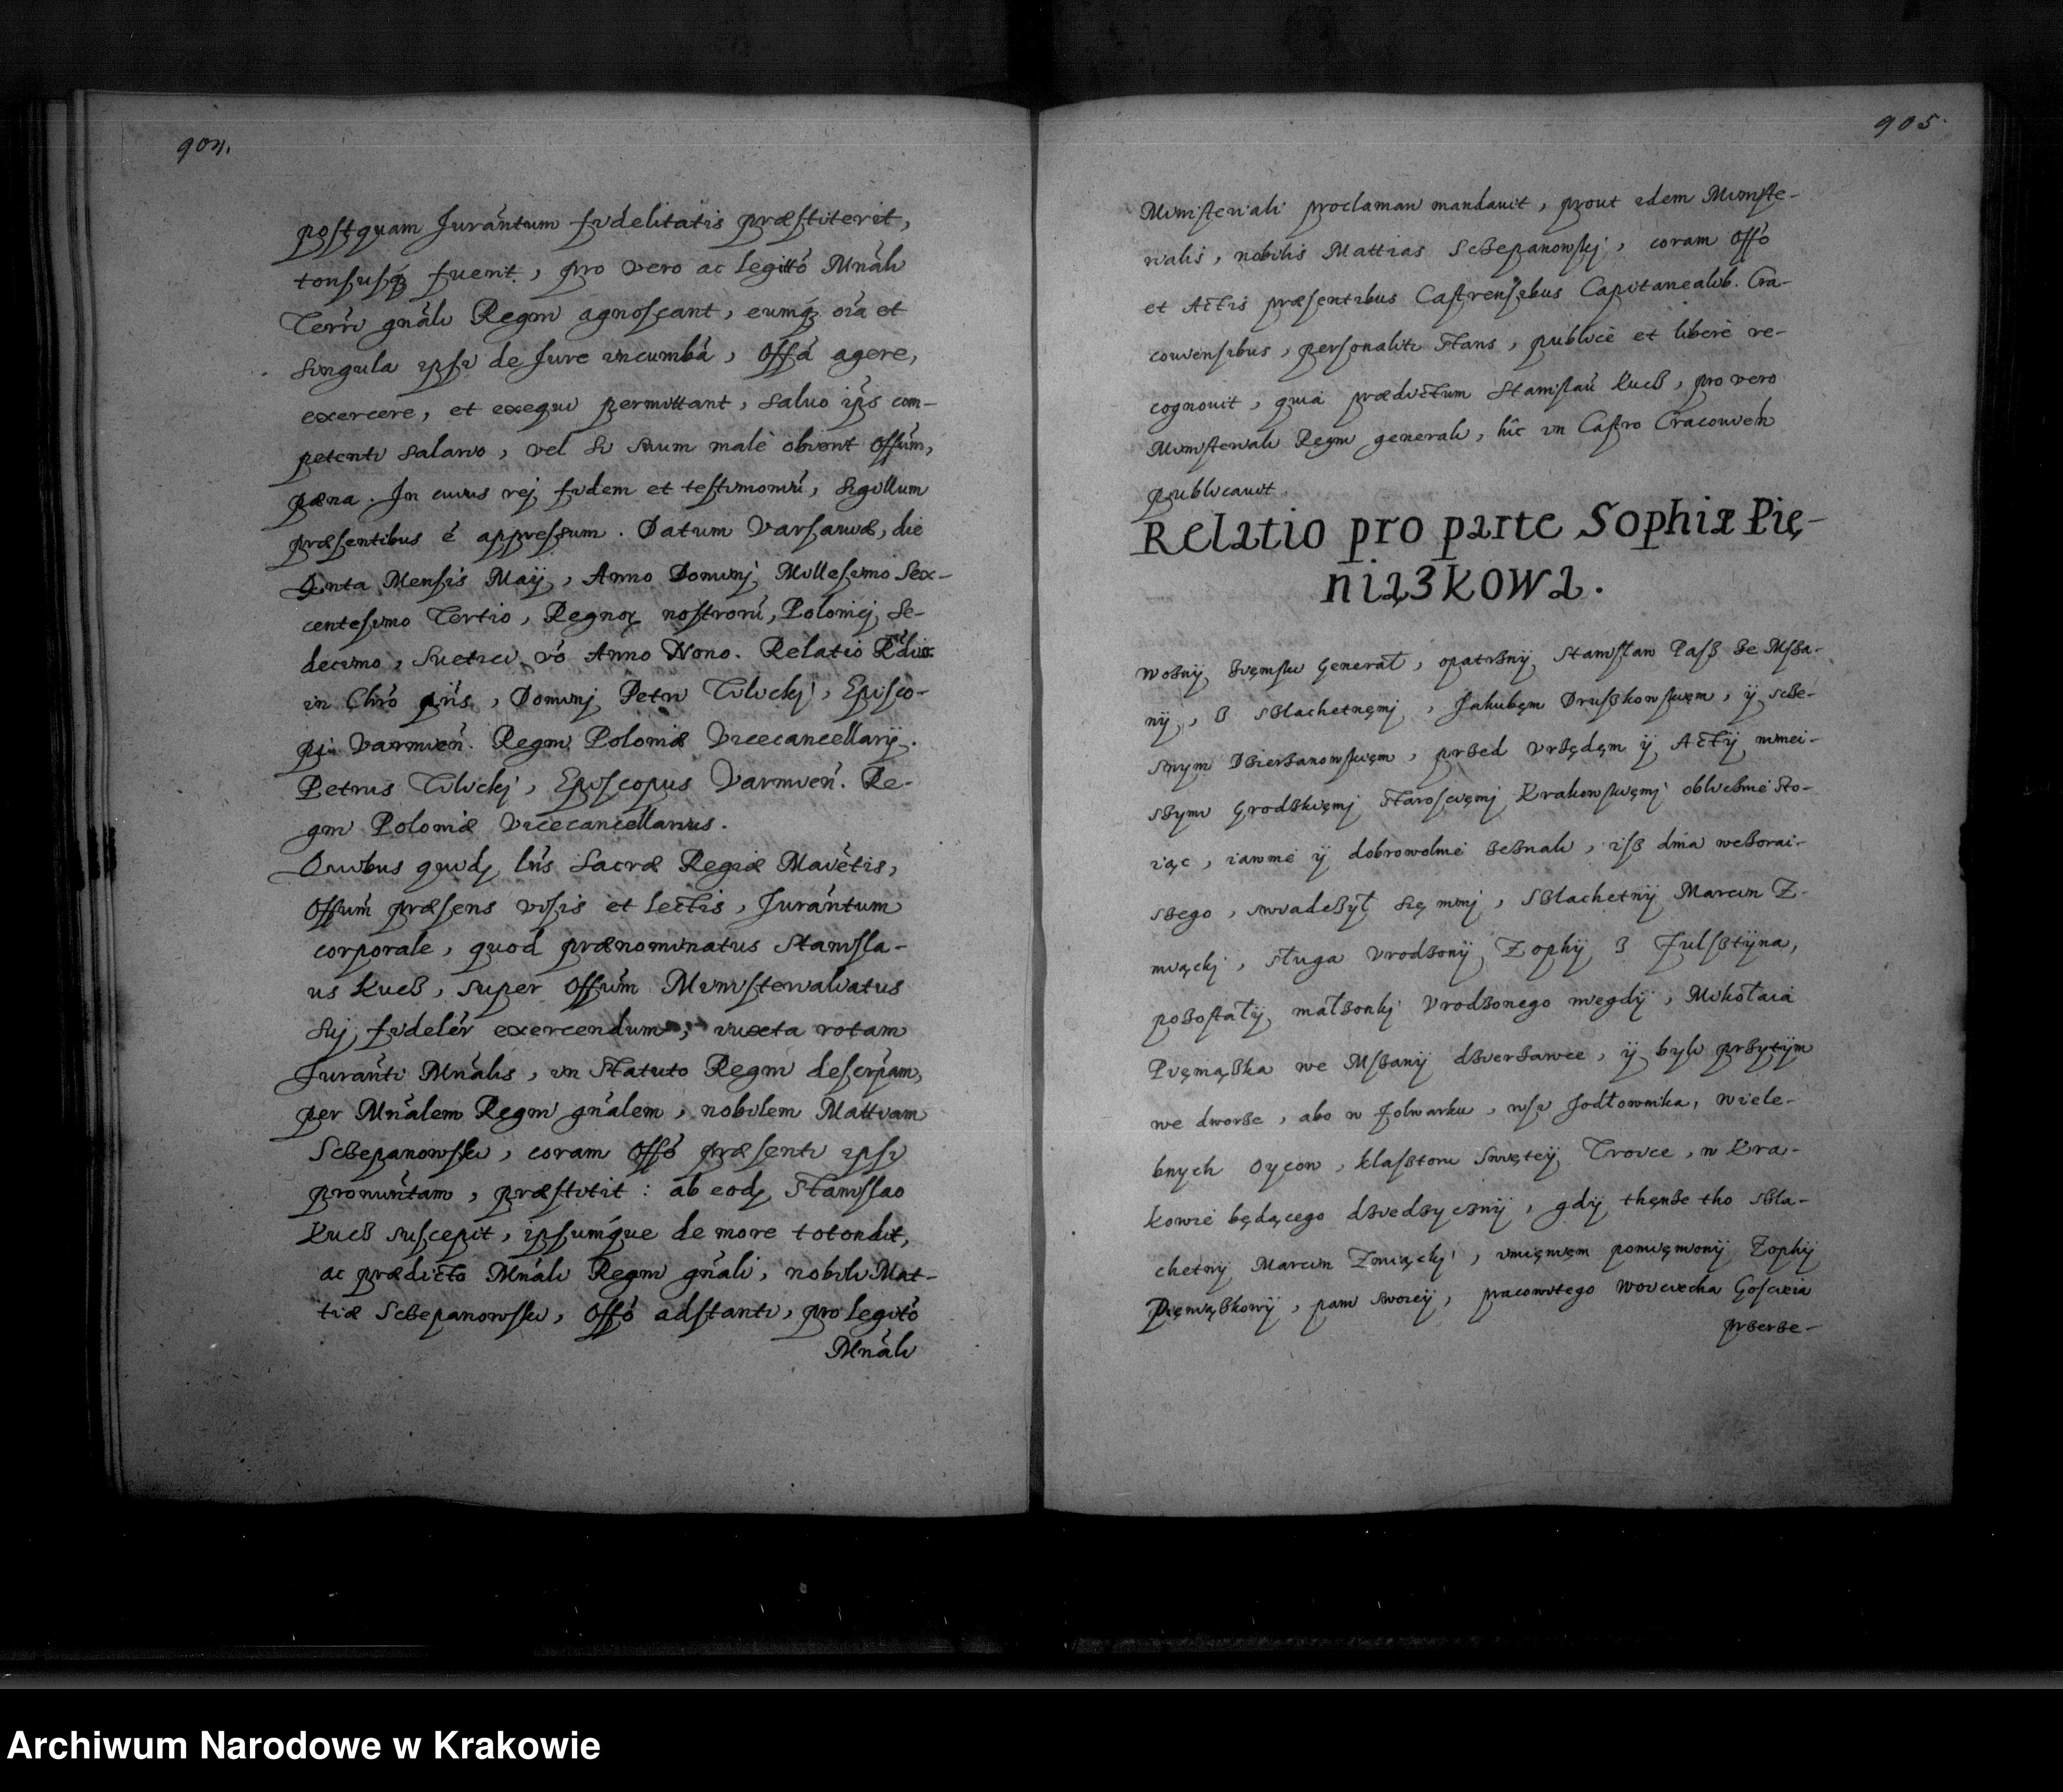 904.
postquam Jurańtum fidelitatis præstiterit,
tonsusq fuerit, pro vero ac legitto Mnáli
Terri gnáli Regni agnoscant, eumq oia et
singula ipsi de Jure incumbá, Offá agere,
exercere, et exequi permittant, saluo ips com-
petenti salario, vel si suum malè obierit Offúm,
pæna. In cuius rej fidem et testimoniú, sigillum
præsentibus é appressum. Datum Varsauiæ, die
Qnta Mensis Maij, Anno Dominj Millesimo Sex-
centesimo Tertio, Regnoꝝ nostrorú, Poloniej Se-
decimo, Suetici vó Anno Nono. Relatio Rdiss.
in Chró pris, Dominj Petri Tilickj, Episco-
pi Varmień. Regni Poloniæ Vicecancellarij.
Petrus Tilickj, Episcopus Varmień. Re-
gni Poloniæ Vicecancellarius.
Quibus quidꝫ lris Sacræ Regiæ Maiétis,
Offium præsens visis et lectis, Jurańtum
corporale, quod prænominatus Stanisla-
us Kucz, super Offúm Ministerialiatus
sij fidelér exercendum, iuxta rotam
Jurańti Mnális, in Statuto Regni descrpam,
per Mnálem Regni gnálem, nobilem Mattiam
Sczepanowski, coram Offó præsenti ipsi
pronuńtam, præstitit: ab eodꝫ Stanislao
Kucz suscepit, ipsumque de more totondit,
ac prædicto Mnáli Regni gnáli, nobili Mat-
tiæ Sczepanowski, Offó adstanti, pro legitó
Mnáli
905.
Ministeriali proclamari mandauit, prout idem Ministe-
rialis, nobilis Mattias Sczepanowskj, coram Offó
et Actis præsentibus Castrensibus Capitanealib. Cra-
couiensibus, personaliti stans, publicè et liberè re-
cognouit, quia prædictum Stanislaú Kucz, pro vero
Ministeriali Regni generali, hîc in Castro Cracouień
publicauit.
Relatio pro parte Sophiæ Pię-
niązkowa.
Wozny ziemski Generał, opatrzny Stanisław Passz ze Msza-
ny, z szlachetnęmj, Jakubęm Druszkowskięm, ÿ scze-
snym Dzierzanowskięm, przed Vrzędęm ÿ Acty ninnei-
szymi Grodzkięmj Staroscięmj Krakowskięmj obliczne sto-
iąc, iawnie ÿ dobrowolnie zeznali, isz dnia wczorai-
szego, swiadczył się nimj, Szlachetnÿ Marcin Z-
miąckj, sługa Vrodzonÿ Zophÿ z Fulsztÿna,
pozostałÿ małzonkj Vrodzonego niegdÿ, Mikołaia
Pięniązka we Mszanÿ dzierzawce, ÿ byli przytÿm
we dworze, abo w folwarku, wsi Jodłownika, wiele-
bnych Oycow, klasztoru Swiętey Troice, w Kra-
kowie będącego dziedzyczny, gdÿ thęnze tho szla-
chetny Marcin Zmiąckj, imięnięm pomięnionÿ Zophÿ
Pięniązkowÿ, pani swoieÿ, pracowitego Woiciecha Goscieia
przerze-
Archiwum Narodowe w Krakowie